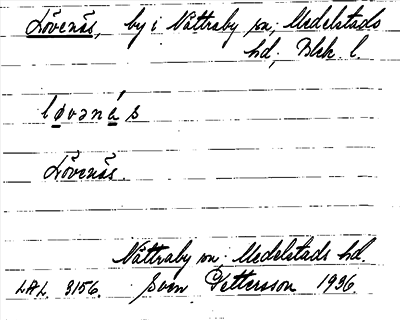 Lövenäs, by i Nättraby sn, Medelstads
hd, Blek. l.
løvəná s
Lövenäs.
Nättraby sn, Medelstads hd.
LAL. 3156. Sven Pettersson 1936.